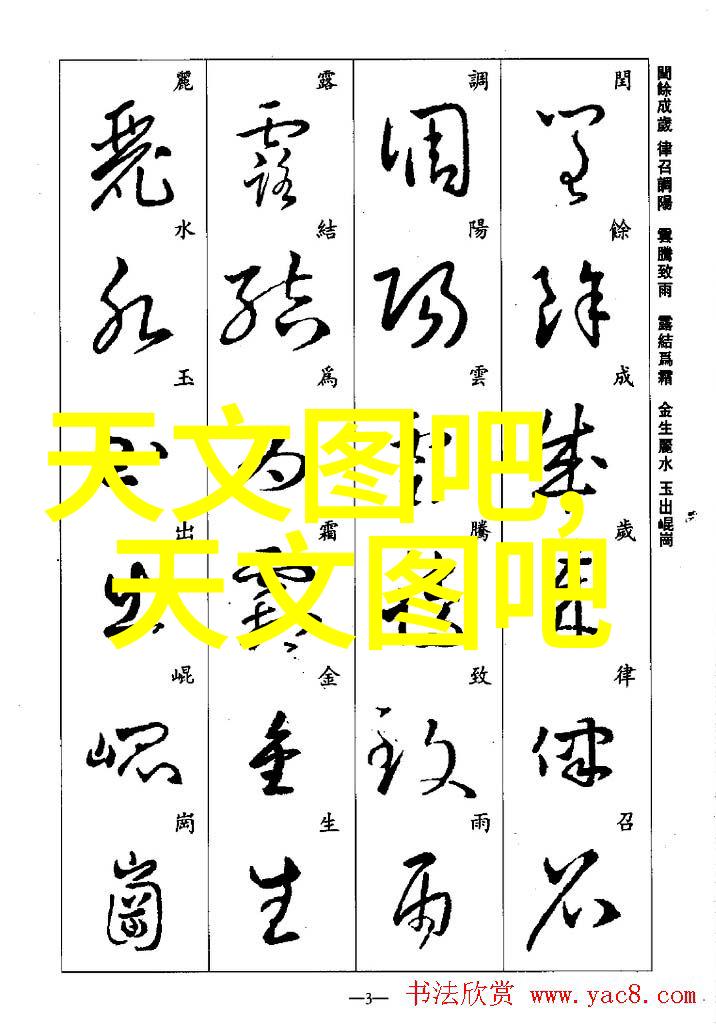 閏餘成歲 律召調陽 雲騰致雨 露結爲霜 金生麗水 玉出崐崗
閏餘成歲律召
調陽雲騰致雨
露結爲霜金生
麗水玉出崐崗
天文图吧,
天文图吧
—3—
书法欣赏 www.yac8.com